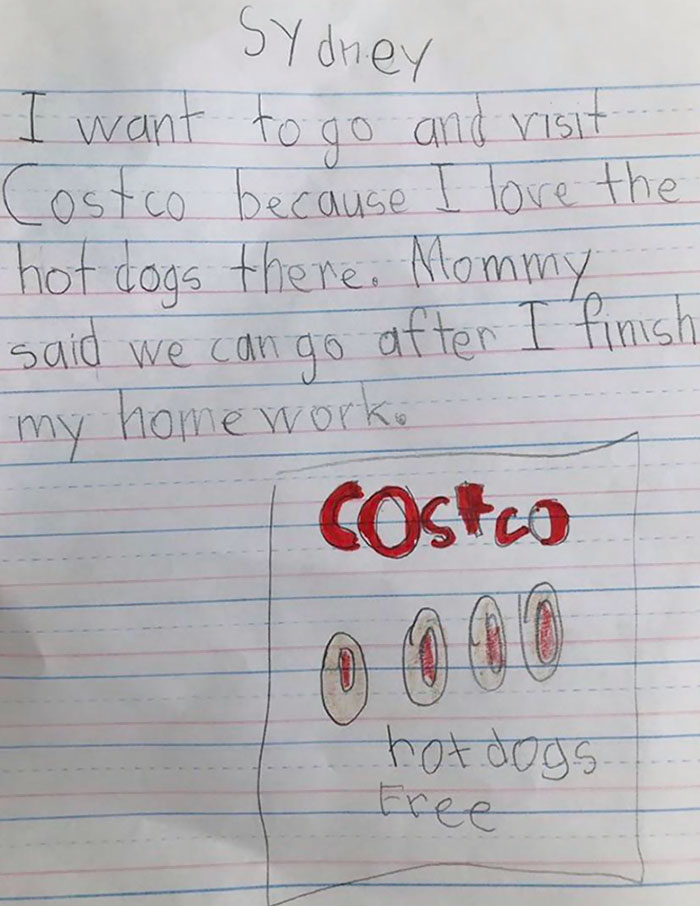 Sydney
I want to go and visit
Costco because I love the
hot dogs there. Mommy
said we can go after I finish
my homework.
Costco
hot dogs
Free